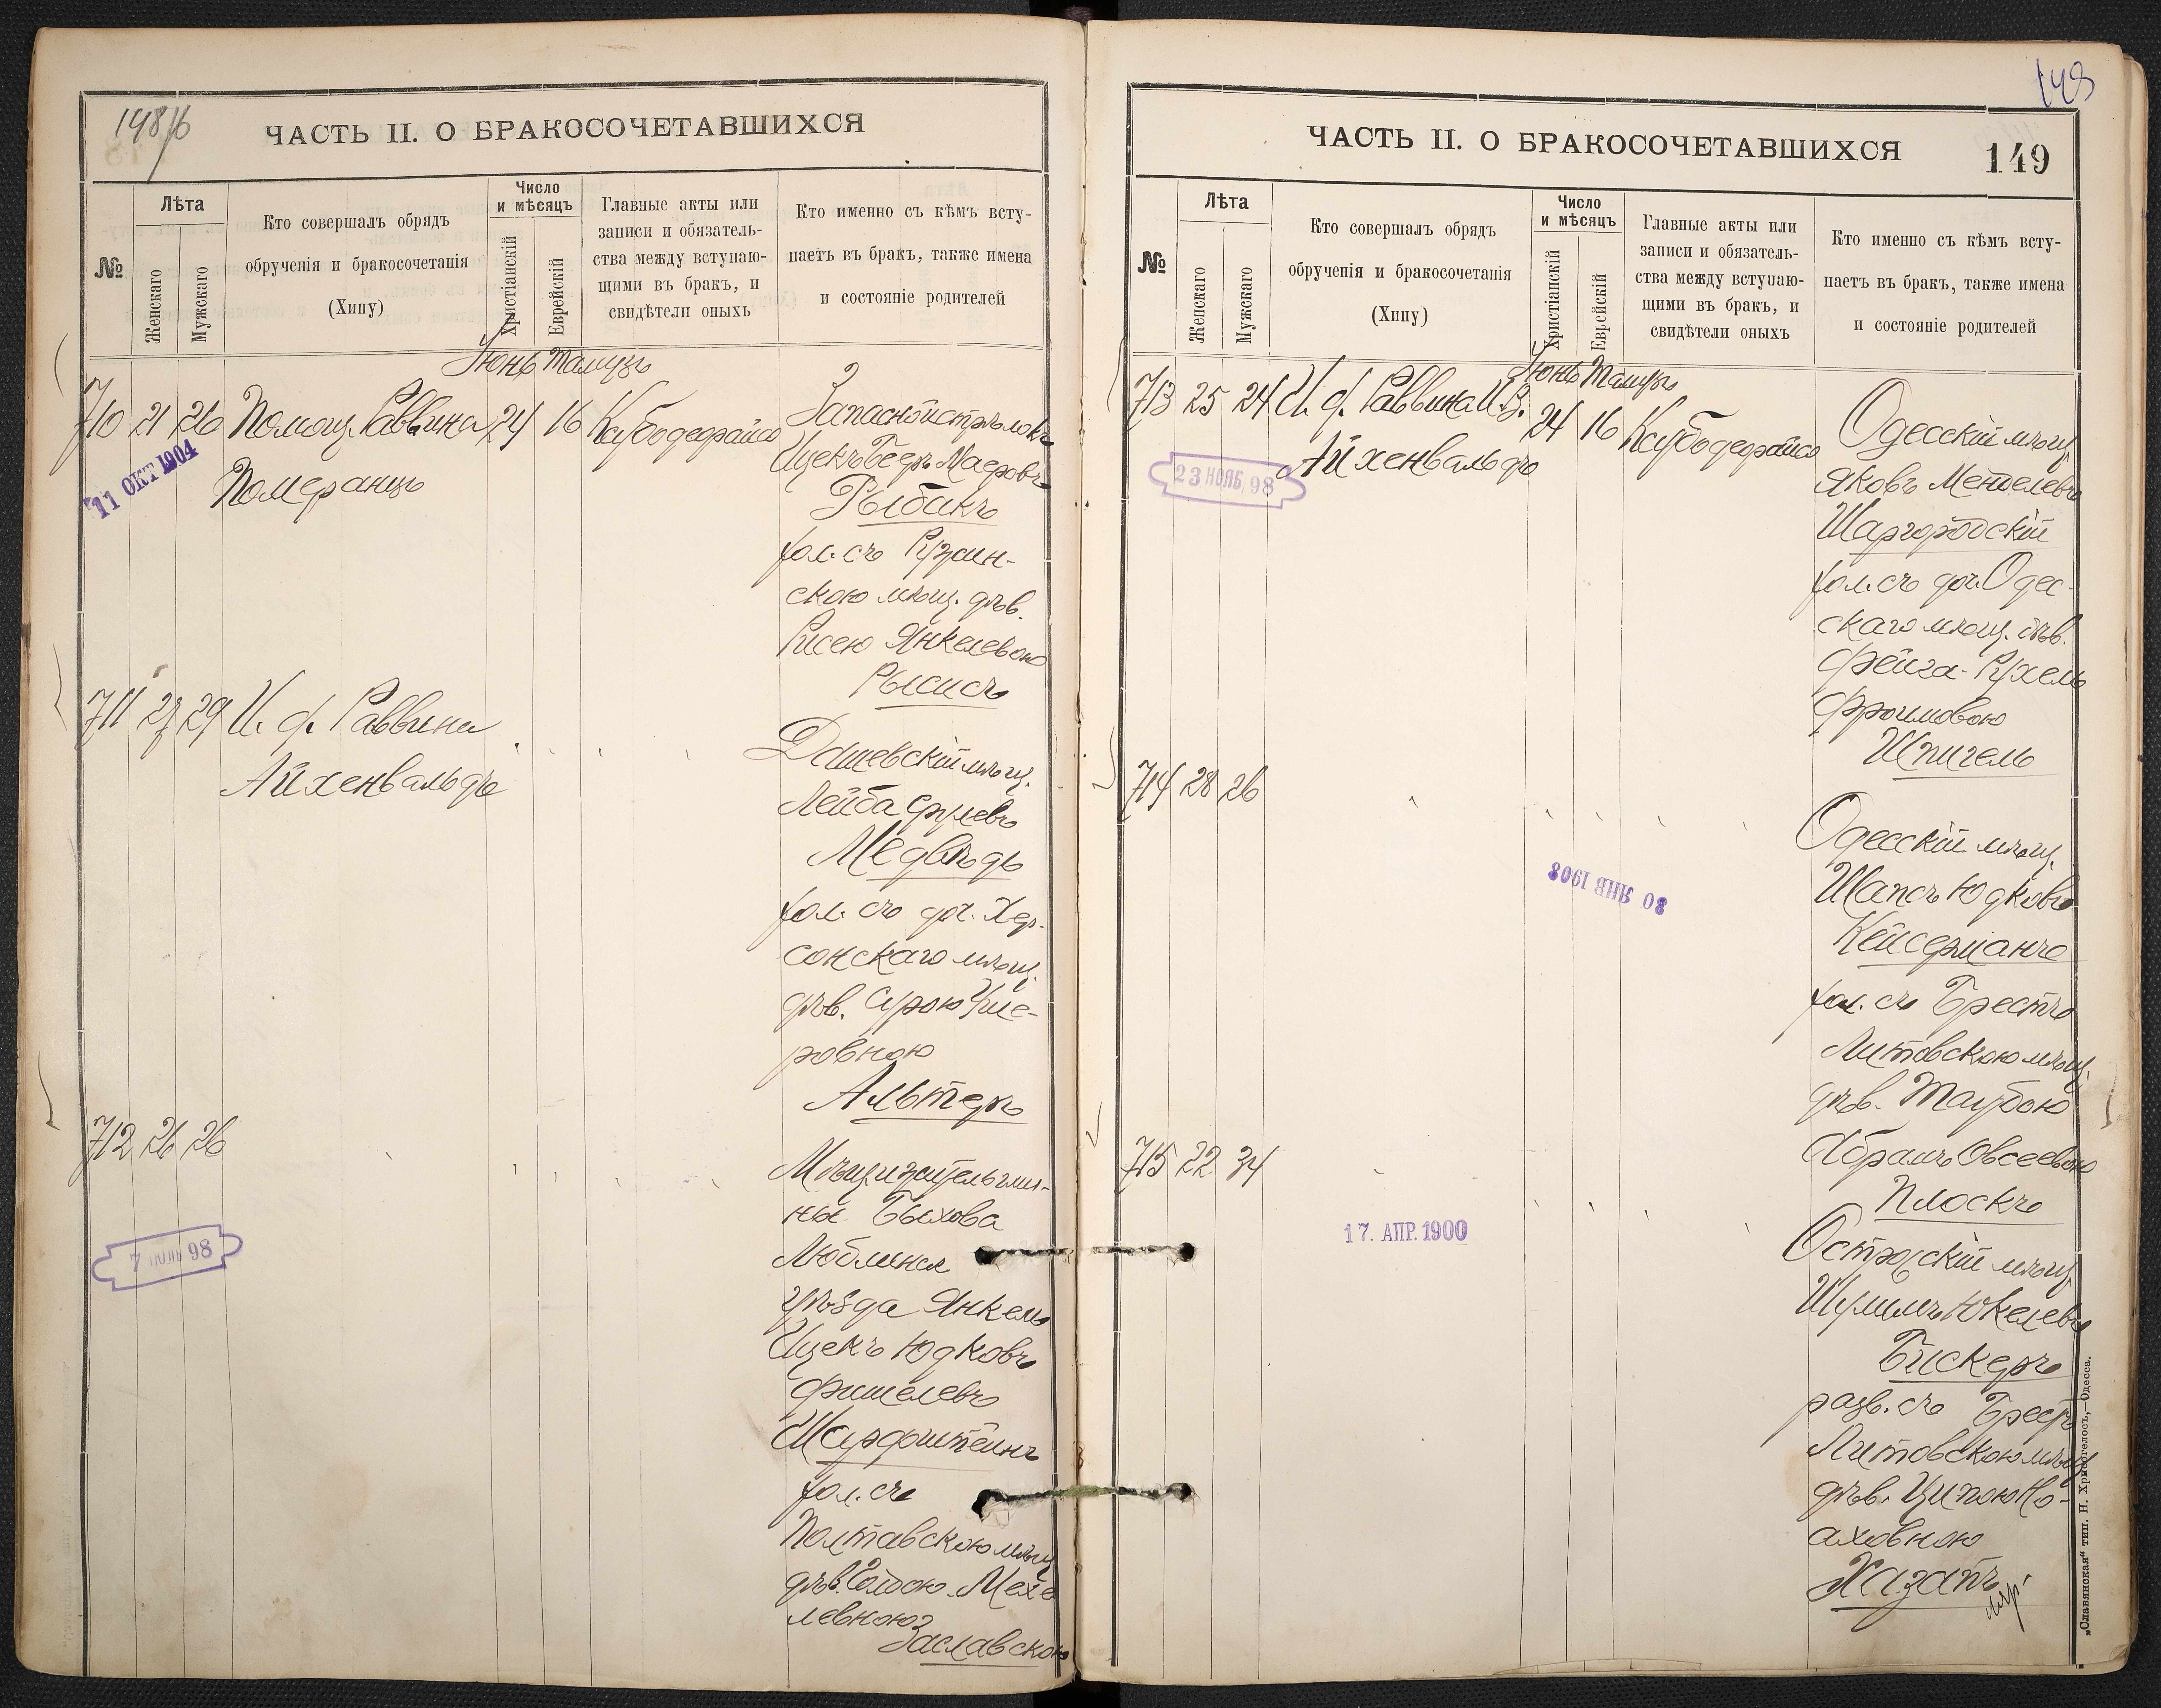 148/б
ЧАСТЬ II. О БРАКОСОЧЕТАВШИХСЯ
№
Лѣта
Женскаго
Мужскаго
Кто совершалъ обрядъ
обрученія и бракосочетанія
(Хипу)
Число
и мѣсяцъ
Христіанскій
Еврейскій
Главные акты или
записи и обязатель-
ства между вступаю-
щими въ бракъ, и
свидѣтели оныхъ
Кто именно съ кѣмъ всту-
паетъ въ бракъ, также имена
и состояніе родителей
Іюнь Тамузъ
710 21 26 Помощ. Раввина 24 16
Померанцъ
11 ОКТ 1904
Запасной стрѣлокъ
Ицекъ Беръ Маеровъ
Рыбакъ
хол. съ
скою мѣщ. дѣв.
Рисею Янкелевою
Рысисъ
711 27 29 И. ф. Раввина
Айхенвальдъ
Дашевскій мѣщ.
Лейба Срулевъ
Медвѣдь
хол. съ доч. Хер-
сонскаго мѣщ.
дѣв. Сурою
ровною
Альтеръ
712 26 26
98
Быхова
Люблинск
уѣзда Янкель
Ицекъ Юдковъ
Фишелевъ
хол. съ
Полтавскою мѣщ
дѣв. Мехе
левною
Заславскою
149
ЧАСТЬ II. О БРАКОСОЧЕТАВШИХСЯ
149
№
Лѣта
Женскаго
Мужскаго
Кто совершалъ обрядъ
обрученія и бракосочетанія
(Хипу)
Число
и мѣсяцъ
Христіанскій
Еврейскій
Главные акты или
записи и обязатель-
ства между вступаю-
щими въ бракъ, и
свидѣтели оныхъ
Кто именно съ кѣмъ всту-
паетъ въ бракъ, также имена
и состояніе родителей
Іюнь Тамузъ
713 25 24 И. ф. Раввина И. З. 24 16
Айхенвальдъ
23 НОЯБ. 98
Одесскій мѣщ.
Яковъ Менделевъ
Шаргородскій
хол. съ доч. Одес-
скаго мѣщ. дѣв.
Фейга-Рухель
Фроимовою
Шпигель
714 28 26
30 ЯНВ 1908
Одесскій мѣщ.
Шапсъ Юдковъ
Кейсерманъ
хол. съ Брестъ
Литовскою мѣщ.
дѣв. Таубою
Абрамъ Овсеевою
Плоскъ
715 22 34
17. АПР. 1900
Острогскій мѣщ.
Шулимъ Юкелевъ
Бискеръ
разв. съ Брестъ
Литовскою мѣщ
дѣв. Ципою Но-
аховною
Хазанъ
„Славянская“ тип. Н. Хрисогелосъ,—Одесса.